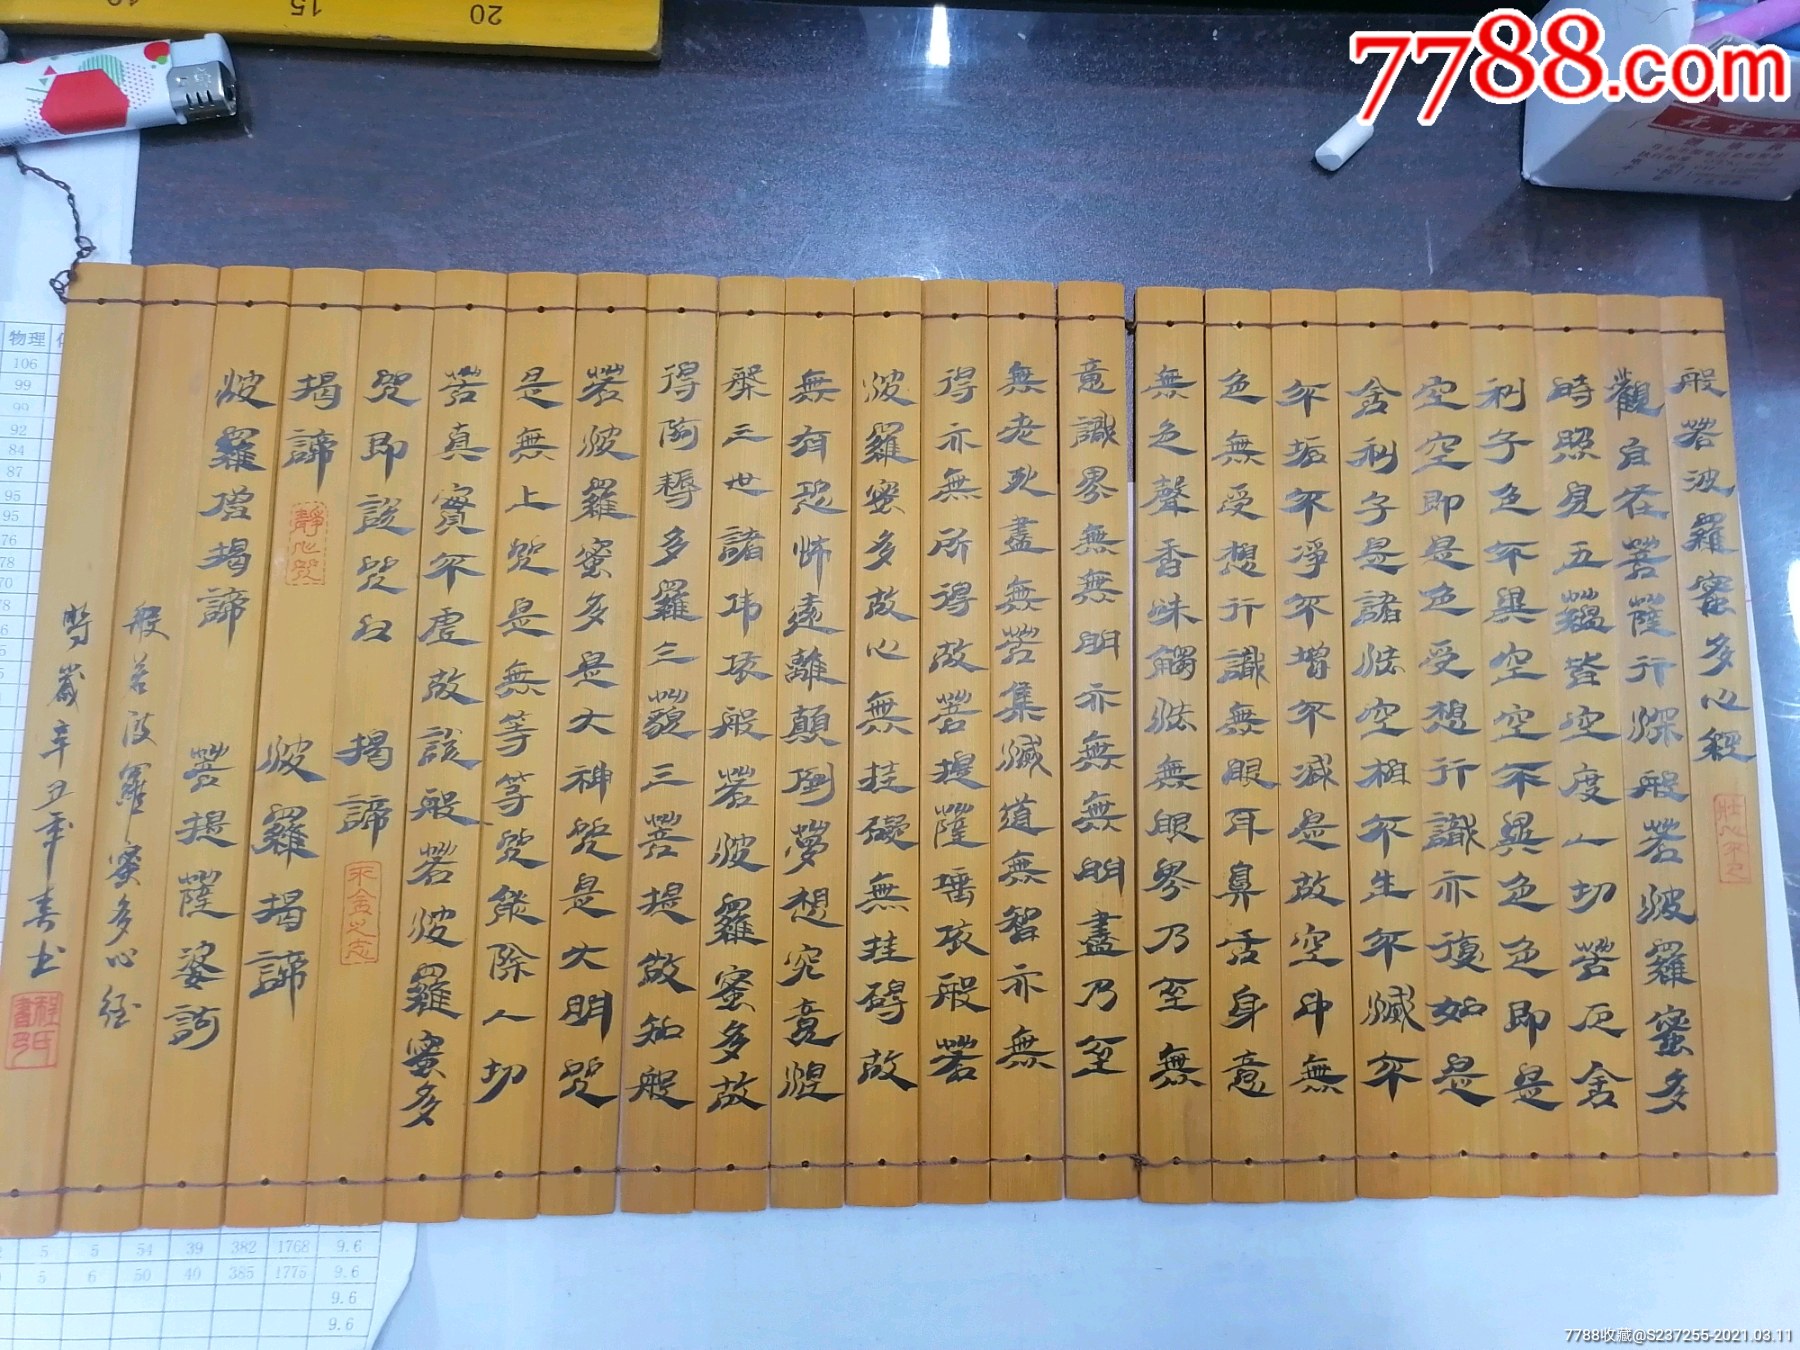 7788.com
20
15
般若波羅蜜多心經
壯心不已
觀自在菩薩行深般若波羅蜜多
時照見五蘊皆空度一切苦厄舍
利子色不異空空不異色色即是
空空即是色受想行識亦復如是
舍利子是諸法空相不生不滅不
不垢不淨不增不減是故空中無
色無受想行識無眼耳鼻舌身意
無色聲香味觸法無眼界乃至無
意識界無無明亦無無明盡乃至
無老死盡無苦集滅道無智亦無
得亦無所得故菩提薩埵依般若
波羅蜜多故心無挂礙無挂碍故
無有恐怖遠離顛倒夢想究竟涅
槃三世諸佛依般若波羅蜜多故
得阿耨多羅三藐三菩提故知般
若波羅蜜多是大神咒是大明咒
是無上咒是無等等咒能除一切
苦真實不虛故說般若波羅蜜多
咒即說咒曰 揭諦
揭諦 波羅揭諦
靜心咒
波羅僧揭諦 菩提薩婆訶
般若波羅蜜多心經
時歲辛丑年春书
物理
106
99
99
92
84
87
95
95
5 5 54 39 382 1768 9.6
5 6 50 40 385 1775 9.6
9.6
9.6
7788收藏@S237255-2021.03.11